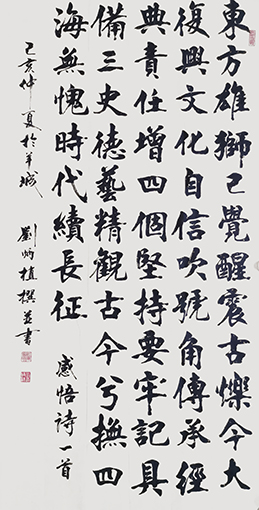 東方雄獅已覺醒震古爍今大
復興文化自信吹號角傳承經
典責任增四個堅持要牢記具
備三史德藝精觀古今兮撫四
海無愧時代續長征
感悟詩一首
己亥仲夏於羊城
劉炳植撰並書